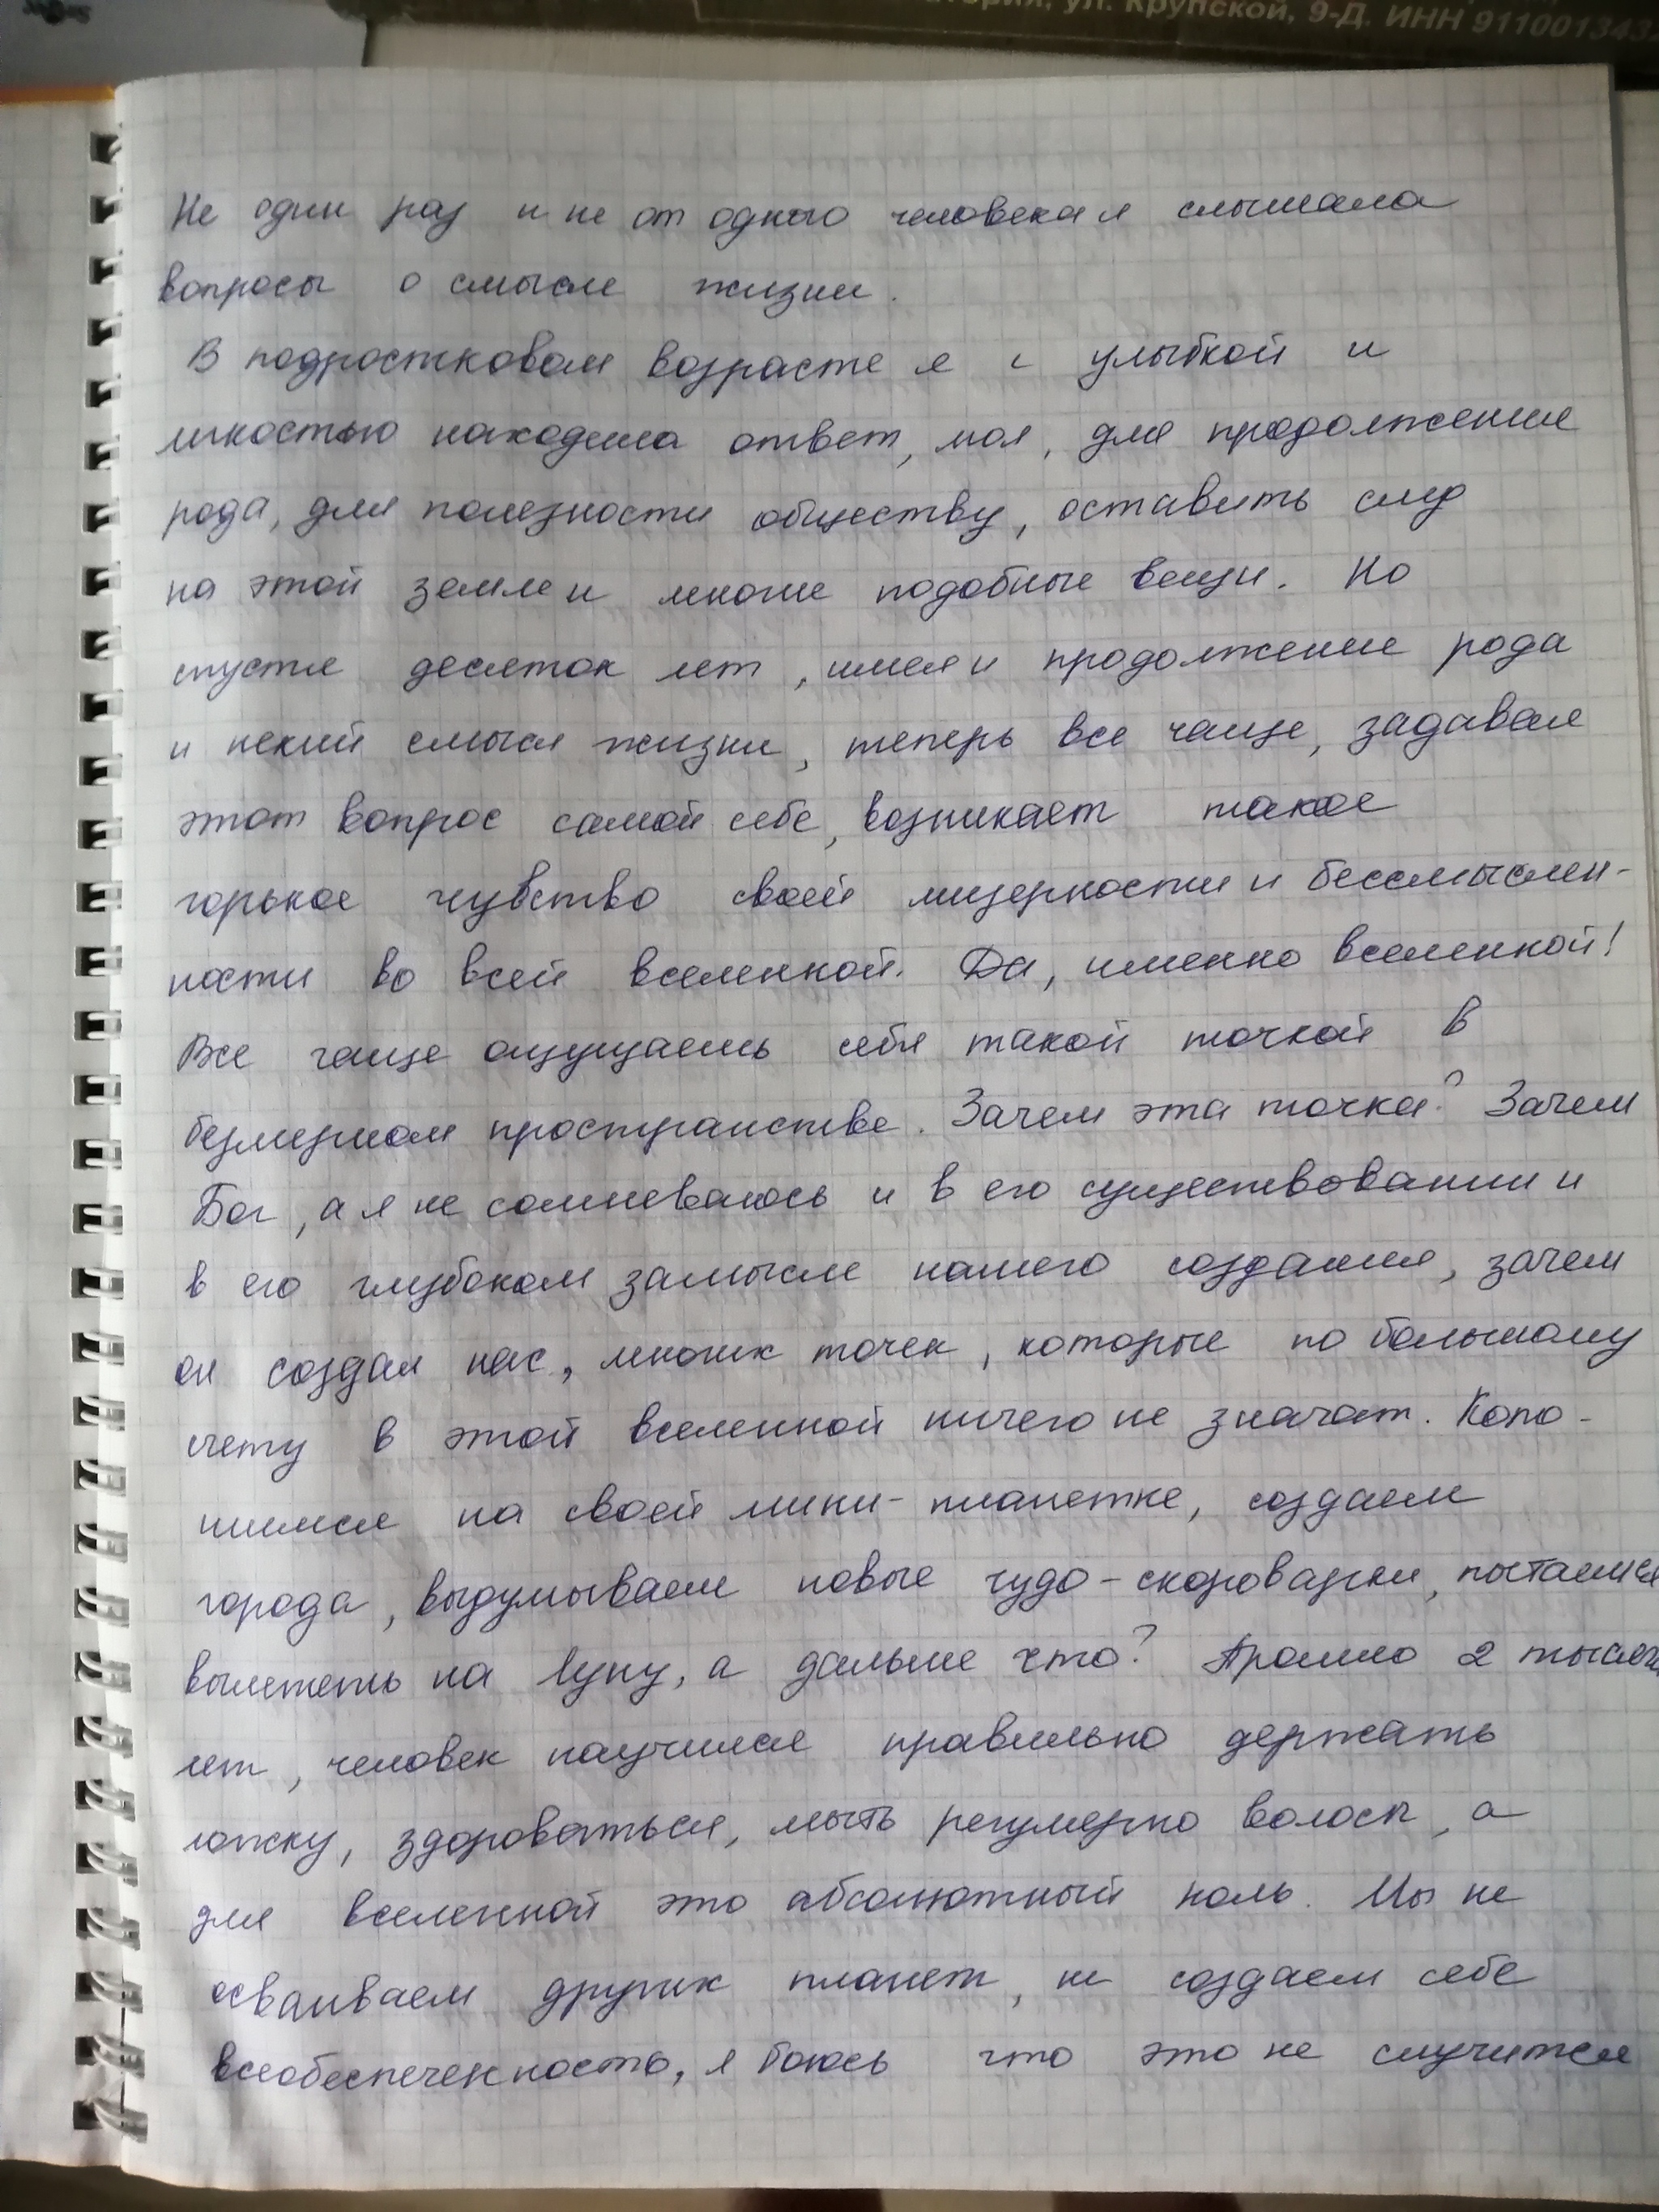 ул. Крупской, 9-Д. ИНН 911001343
Не один раз и не от одного человека я слышала
вопросы о смысле жизни.
В подростковом возрасте я с улыбкой и
лёгкостью находила ответ, мол, для продолжения
рода, для полезности обществу, оставить след
на этой земле и многие подобные вещи. Но
спустя десяток лет, имея и продолжение рода
и некий смысл жизни, теперь все чаще, задавая
этот вопрос самой себе, возникает такое
горькое чувство своей мизерности и бессмыслен-
ности во всей вселенной. Да, именно вселенной!
Все чаще ощущаешь себя такой точкой в
безмерном пространстве. Зачем эта точка? Зачем
Бог, а я не сомневаюсь и в его существовании и
в его глубоком замысле нашего создания, зачем
он создал нас, многих точек, которые по большому
счету в этой вселенной ничего не значат. Копо-
шимся на своей мини-планетке, создаем
города, выдумываем новые чудо-скороварки, пытаемся
вылететь на луну, а дальше что? Прошло 2 тысячи
лет, человек научился правильно держать
ложку, здороваться, мыть регулярно волосы, а
для вселенной это абсолютный ноль. Мы не
осваиваем других планет, не создаем себе
всеобеспеченность, я боюсь что это не случится